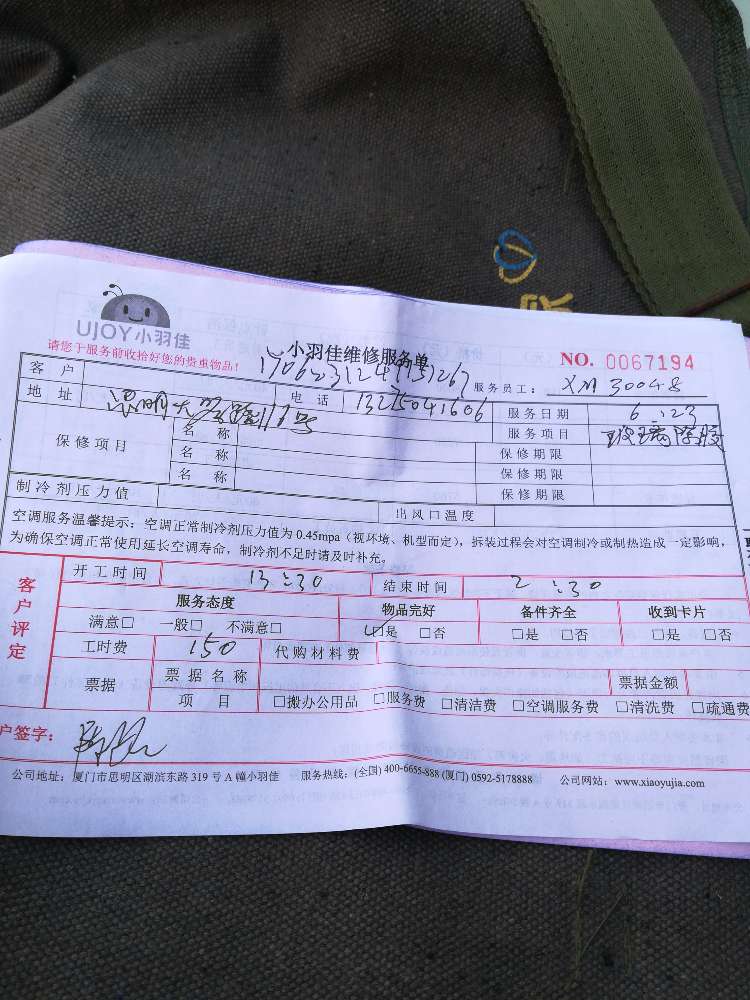 UJOY小羽佳
请您于服务前收拾好您的贵重物品!
小羽佳维修服务单
NO. 0067194
服务员工: XM 30048
客户
地址 电话 13215041606 服务日期 6:23
服务项目 玻璃除胶
保修项目 名称 保修期限
名称 保修期限
名称 保修期限
制冷剂压力值 出风口温度
空调服务温馨提示:空调正常制冷剂压力值为0.45mpa(视环境、机型而定),拆装过程会对空调制冷或制热造成一定影响,
为确保空调正常使用延长空调寿命,制冷剂不足时请及时补充。
客户评定
开工时间 13:30 结束时间 2:30
服务态度 物品完好 备件齐全 收到卡片
满意□ 一般□ 不满意□ ☑是 □否 □是 □否 □是 □否
工时费 150 代购材料费
票据 票据名称 票据金额
项目 □搬办公用品 □服务费 □清洁费 □空调服务费 □清洗费 □疏通费
户签字:
公司地址:厦门市思明区湖滨东路319号A幢小羽佳 服务热线:(全国)400-6655-888 (厦门) 0592-5178888 公司网站:www.xiaoyujia.com